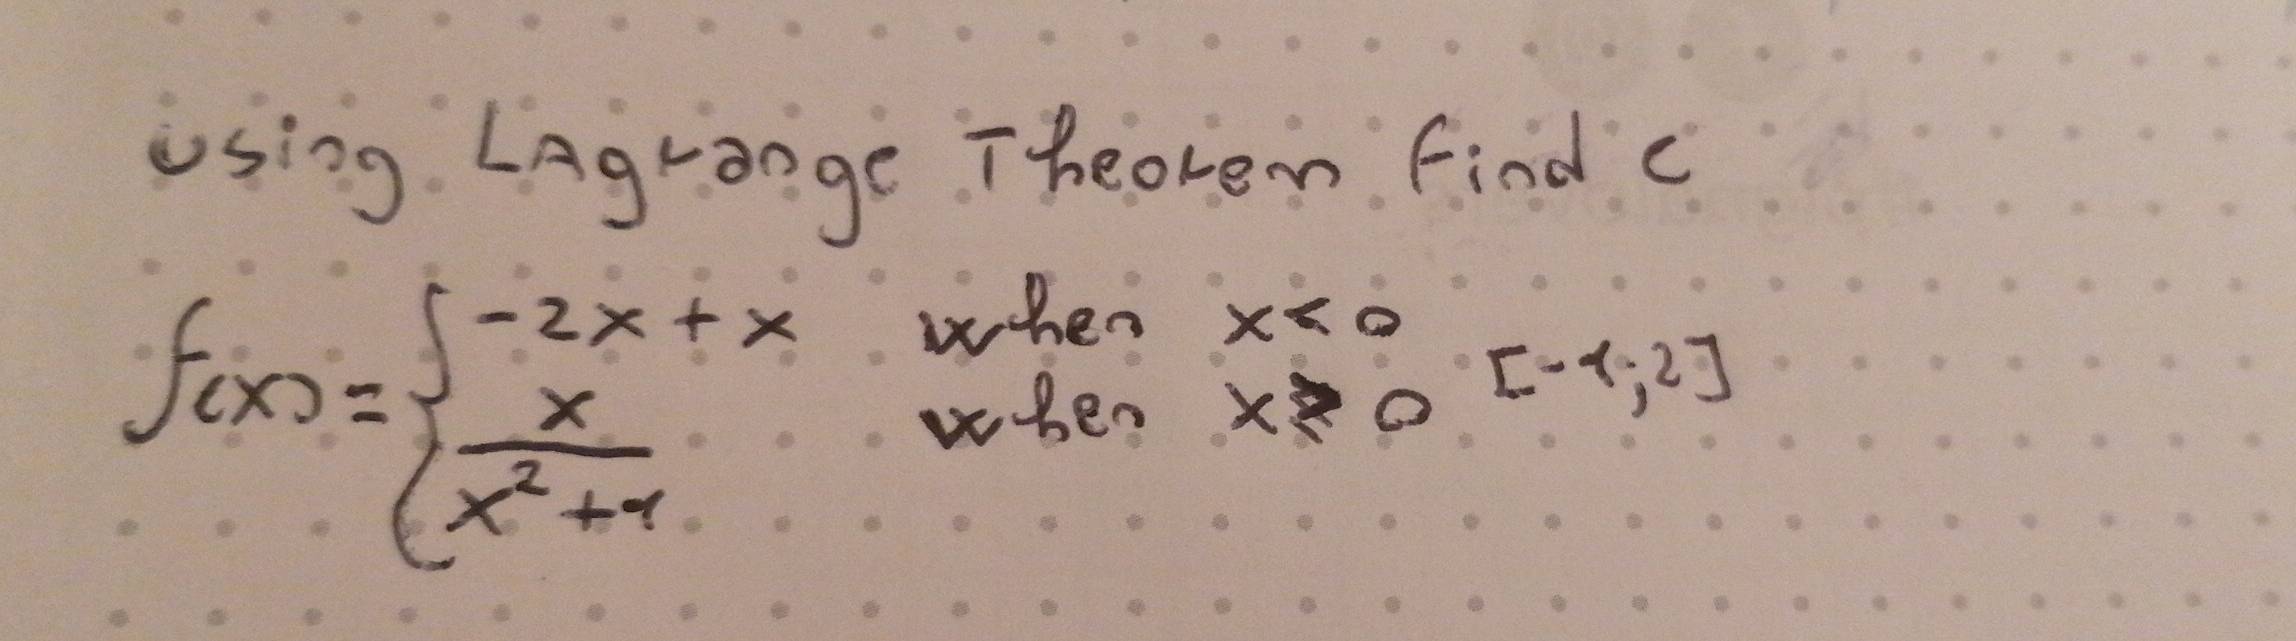 using LAgrange Theorem find c
f(x) = { -2x + x when x < 0
x / x² + 1 when x ≥ 0 [-1;2]